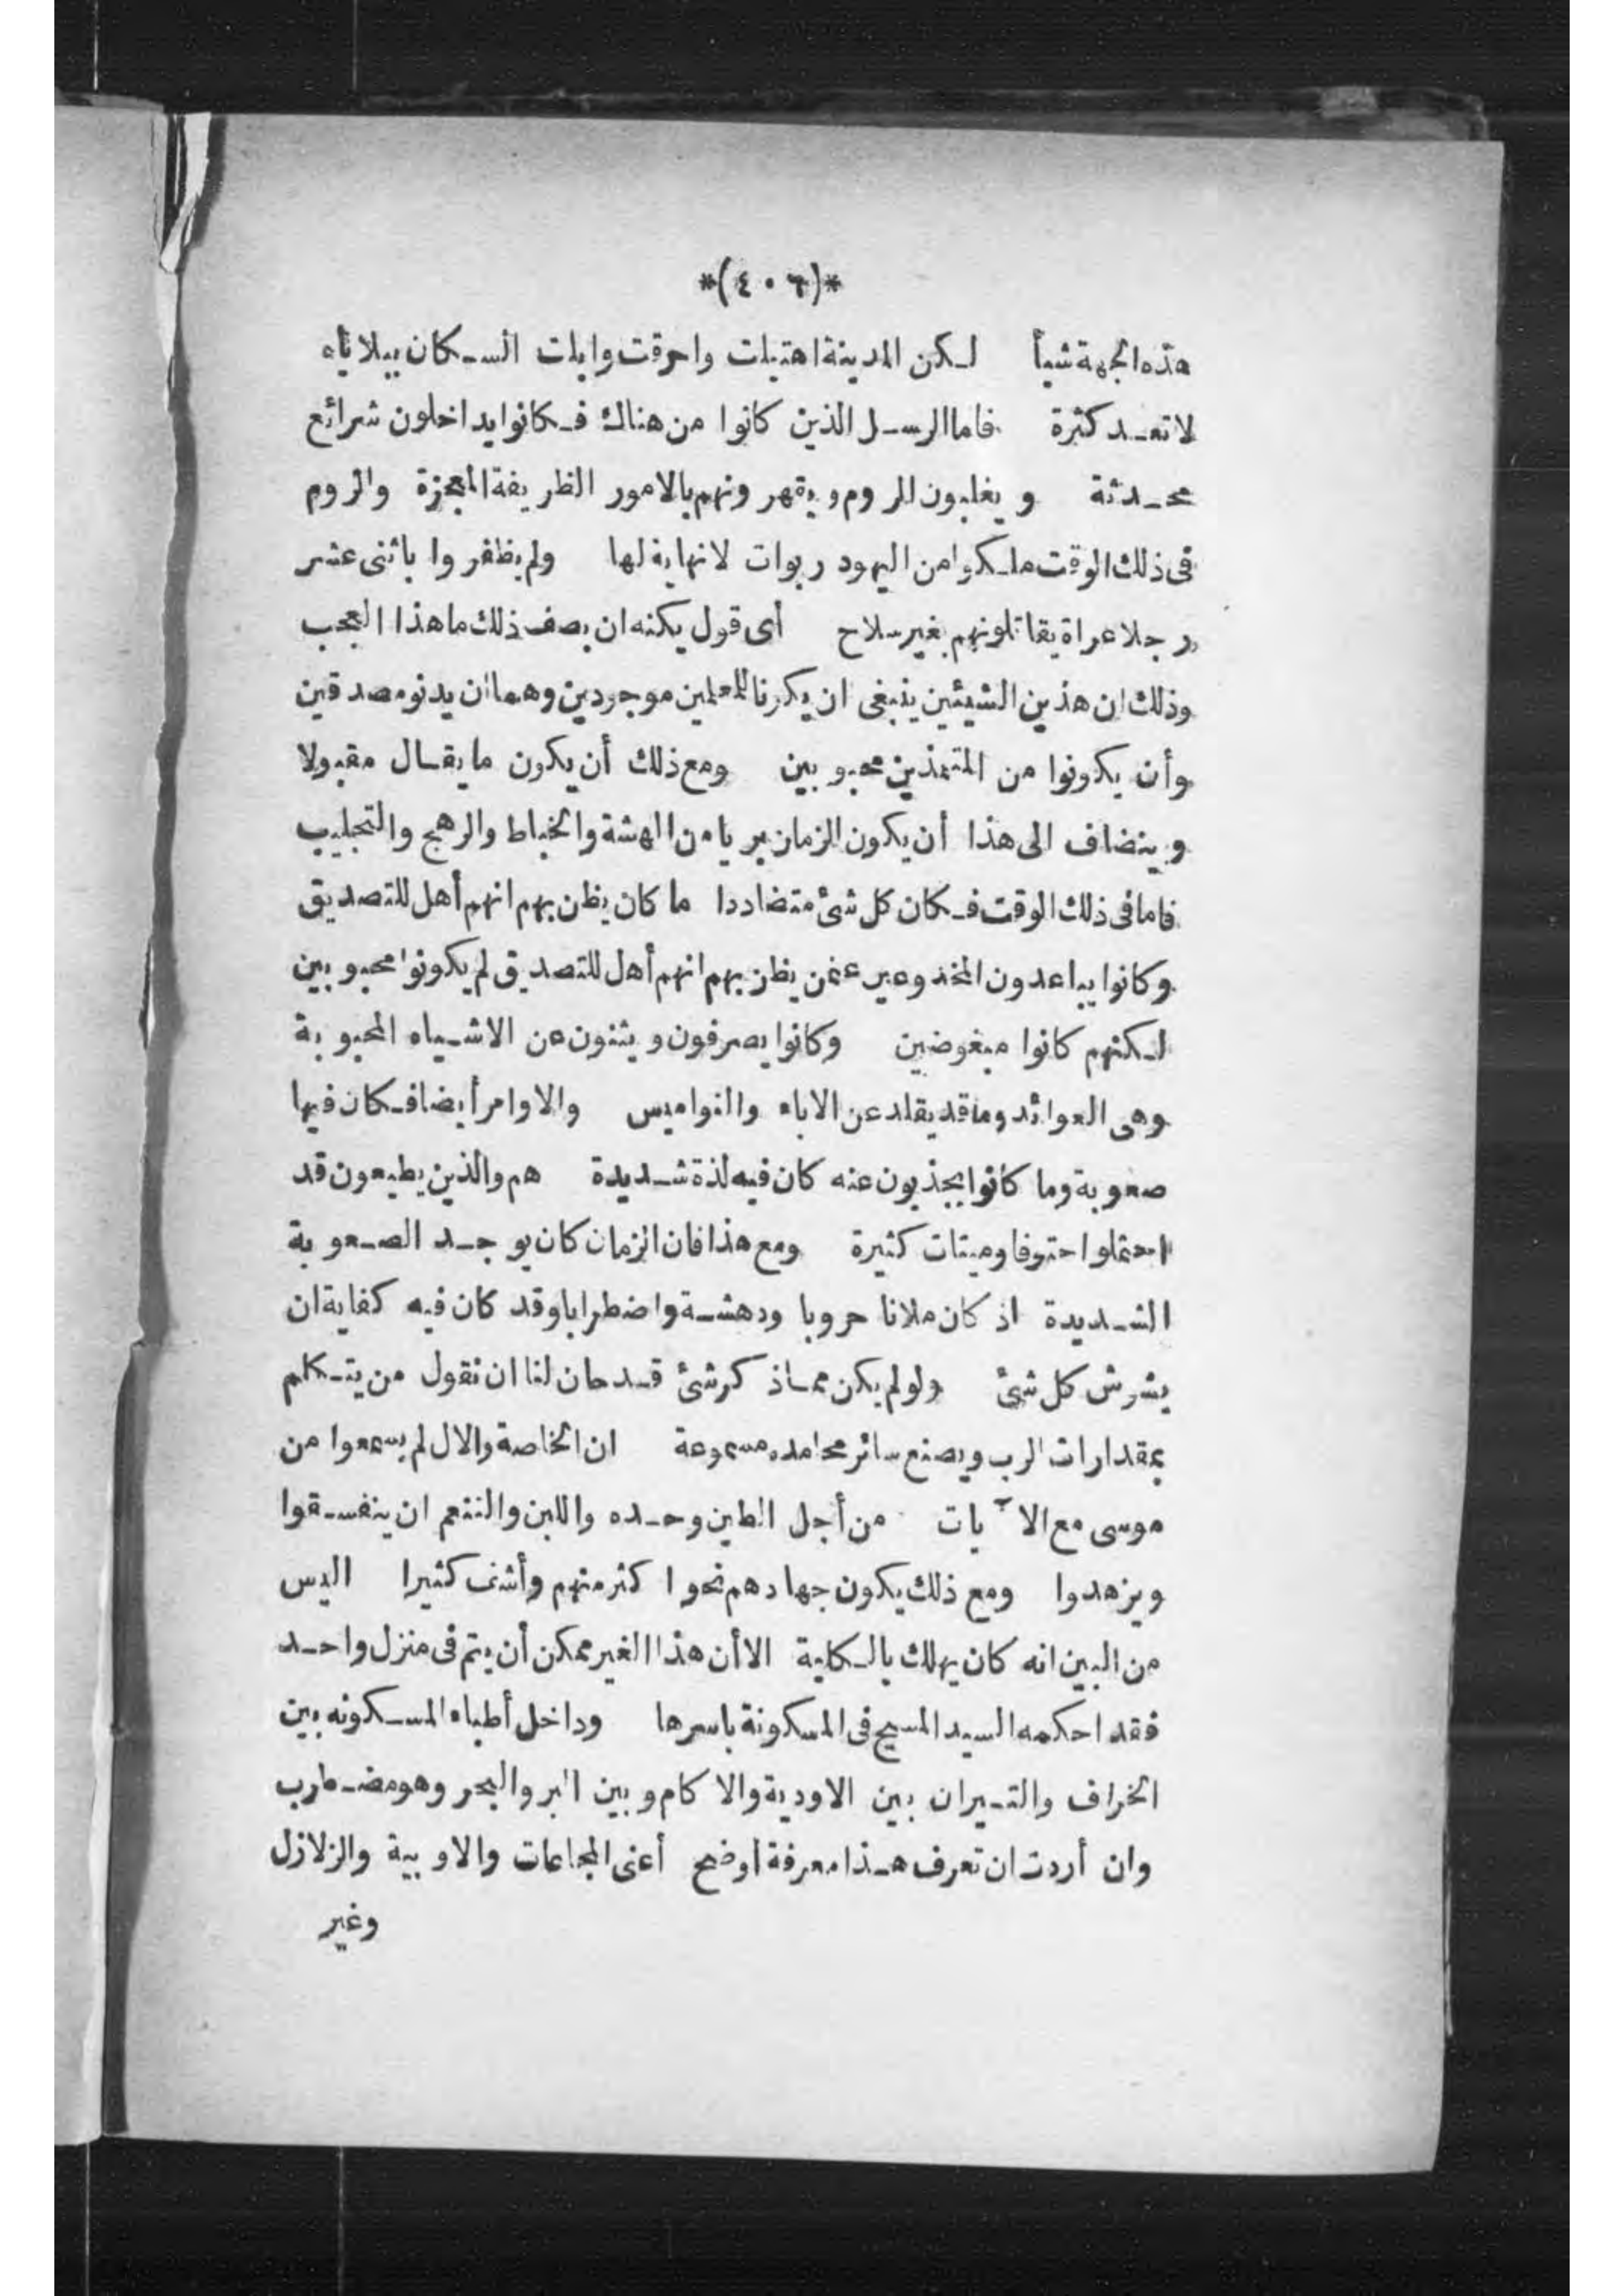 *(٤٠٦)*
هذه الجهة شيأ لكن المدينة اهتبلت واحرقت وابلت السكان ببلاياه
لا تعد كثرة فاما الرسل الذين كانوا من هناك فكانوا يداخلون شرائع
محدثة ويغلبون الروم ويقهرونهم بالامور الظريفة المعجزة والروم
فى ذلك الوقت ملكوا من اليهود ربوات لا نهاية لها ولم يظفروا باثنى عشر
رجلا عراة يقاتلونهم بغير سلاح أى قول يمكنه ان يصف ذلك ما هذا العجب
وذلك ان هذين الشيئين ينبغى ان يكونا للمعلمين موجودين وهما ان يدنو مصدقين
وأن يكونوا من المتلمذين محبوبين ومع ذلك أن يكون ما يقال مقبولا
وينضاف الى هذا أن يكون الزمان بريا من الهشة والخباط والرهج والتجليب
فاما فى ذلك الوقت فكان كل شئ متضاددا ما كان يظن بهم انهم أهل للتصديق
وكانوا يباعدون المخدوعين عمن يظن بهم انهم أهل للتصديق لم يكونوا محبوبين
لكنهم كانوا مبغوضين وكانوا يصرفون ويثنون عن الاشياء المحبوبة
وهى العوائد وما قد يقلد عن الاباء والنواميس والاوامر أيضا فكان فيها
صعوبة وما كانوا يجذبون عنه كان فيه لذة شديدة هم والذين يطيعون قد
احتملوا حتوفا وميتات كثيرة ومع هذا فان الزمان كان يوجد الصعوبة
الشديدة اذ كان ملانا حروبا ودهشة واضطرابا وقد كان فيه كفاية ان
يشوش كل شئ ولو لم يكن مما ذكر شئ قد حان لنا ان نقول من يتكلم
بمقدارات الرب ويصنع سائر محامده مسموعة ان الخاصة والال لم يسمعوا من
موسى مع الآيات من أجل الطين وحده واللبن والتنعم ان ينفسقوا
ويزهدوا ومع ذلك يكون جهادهم نحوا كثر منهم وأشف كثيرا اليس
من البين انه كان يهلك بالكلية الا أن هذا الغير ممكن أن يتم فى منزل واحد
فقد احكمه السيد المسيح فى المسكونة باسرها وداخل أطباء المسكونه بين
الخراف والتيران بين الاودية والاكام وبين البر والبحر وهو مضطرب
وان أردت ان تعرف هذا معرفة أوضح أعنى المجاعات والاوبية والزلازل
وغير